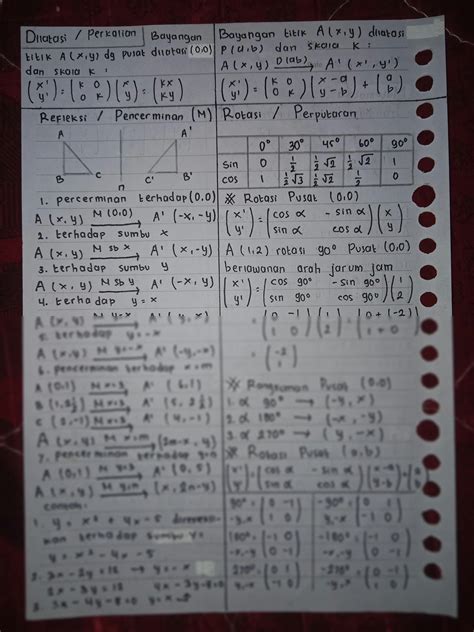 Dilatasi / Perkalian
Bayangan
titik A(x,y) dg pusat dilatasi (0,0)
dan skala k :
(x' y') = (k 0 0 k) (x y) = (kx ky)
Bayangan titik A(x,y) dilatasi
P(a,b) dan skala k :
A(x,y) D(a,b) → A'(x',y')
(x' y') = (k 0 0 k) (x-a y-b) + (a b)
Refleksi / Pencerminan (M)
A A'
B C C' B'
n
1. percerminan terhadap (0,0)
A (x,y) M(0,0) → A' (-x,-y)
2. terhadap sumbu x
A (x,y) M sb x → A' (x,-y)
3. terhadap sumbu y
A (x,y) M sb y → A' (-x,y)
4. terhadap y=x
A (x,y) M y=x → A' (y,x)
5. terhadap y=-x
A (x,y) M y=-x → A' (-y,-x)
6. pencerminan terhadap x=m
A (0,1) M x=3 → A' (6,1)
A (x,y) M x=m → (2m-x, y)
7. pencerminan terhadap y=n
A (0,1) M y=3 → A' (0,5)
A (x,y) M y=n → (x, 2n-y)
contoh:
1. y = x² + 4x - 5
terhadap sumbu y=
y = x² - 4x - 5
2. 3x - 2y = 12 → y=-x
2x - 3y = 12
3. 3x - 4y - 8=0
Rotasi / Perputaran
0° 30° 45° 60° 90°
sin 0 ½ ½√2 ½√2 1
cos 1 ½√3 ½√2 ½ 0
※ Rotasi Pusat (0,0)
(x' y') = (cos α -sin α sin α cos α) (x y)
A (1,2) rotasi 90° Pusat (0,0)
berlawanan arah jarum jam
(x' y') = (cos 90° -sin 90° sin 90° cos 90°) (1 2)
= (0 -1 1 0) (1 2) = (0+(-2) 1+0)
= (-2 1)
※ Rangkuman Pusat (0,0)
1. α 90° → (-y,x)
2. α 180° → (-x,-y)
3. α 270° → (y,-x)
※ Rotasi Pusat (a,b)
(x' y') = (cos α -sin α sin α cos α) (x-a y-b) + (a b)
90° = (0 -1 1 0) -90° = (0 1 -1 0)
-y,x y,-x
180° = (-1 0 0 -1) -180° = (-1 0 0 -1)
-x,-y -x,-y
270° = (0 1 -1 0) -270° = (0 -1 1 0)
y,-x -y,x